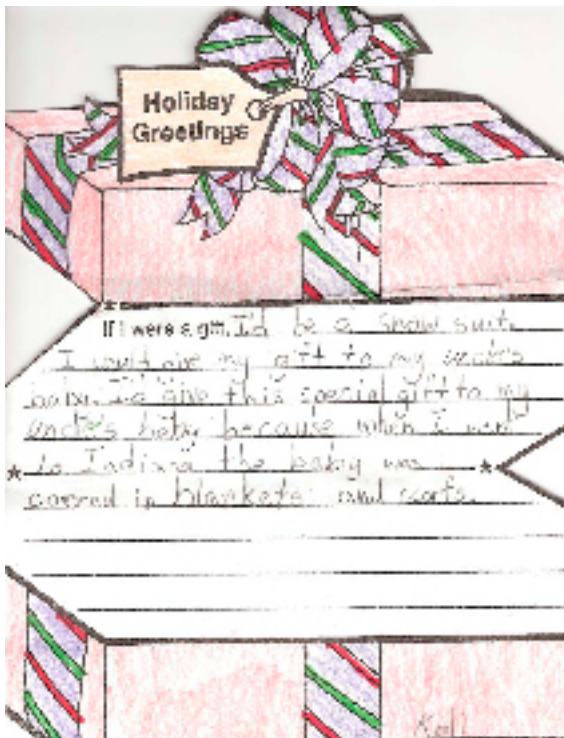 Holiday
Greetings
If I were a gift, I'd be a snow suit.
I would give my gift to my uncle's
baby. I'd give this special gift to my
uncle's baby because when I went
to Indiana the baby was
covered in blankets and scarfs.